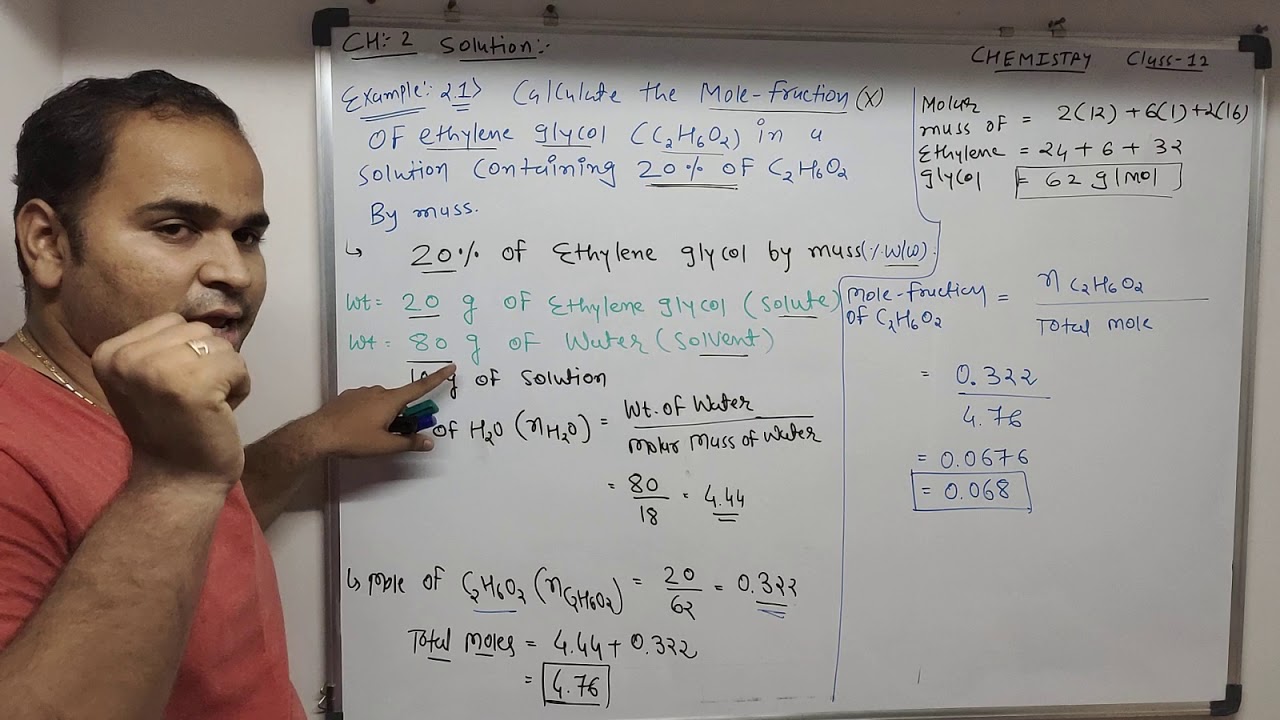 CH:- 2 Solution:-
CHEMISTRY Class-12
Example:- 2.1> Calculate the Mole-fraction (x)
OF ethylene glycol (C2H6O2) in a
solution containing 20% OF C2H6O2
By mass.
↳ 20% of Ethylene glycol by mass (% w/w).
Wt = 20 g OF Ethylene glycol (Solute)
Wt = 80 g OF Water (Solvent)
g of solution
of H2O (nH2O) = Wt. of Water
Molar Mass of Water
= 80
18
= 4.44
↳ Mole of C2H6O2 (nC2H6O2) = 20
62
= 0.322
Total Moles = 4.44 + 0.322
= 4.76
Molar
mass of = 2(12) + 6(1) + 2(16)
Ethylene = 24 + 6 + 32
glycol = 62 g/mol
Mole-fraction
of C2H6O2 = n C2H6O2
Total mole
= 0.322
4.76
= 0.0676
= 0.068